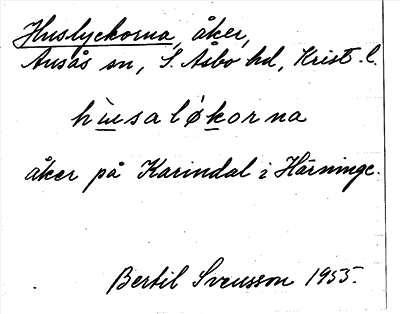 Huslyckorna, åker,
Ausås sn, S. Åsbo hd, Krist. l.
hùsaløkorna
åker på Karindal i Härninge.
Bertil Svensson 1955.